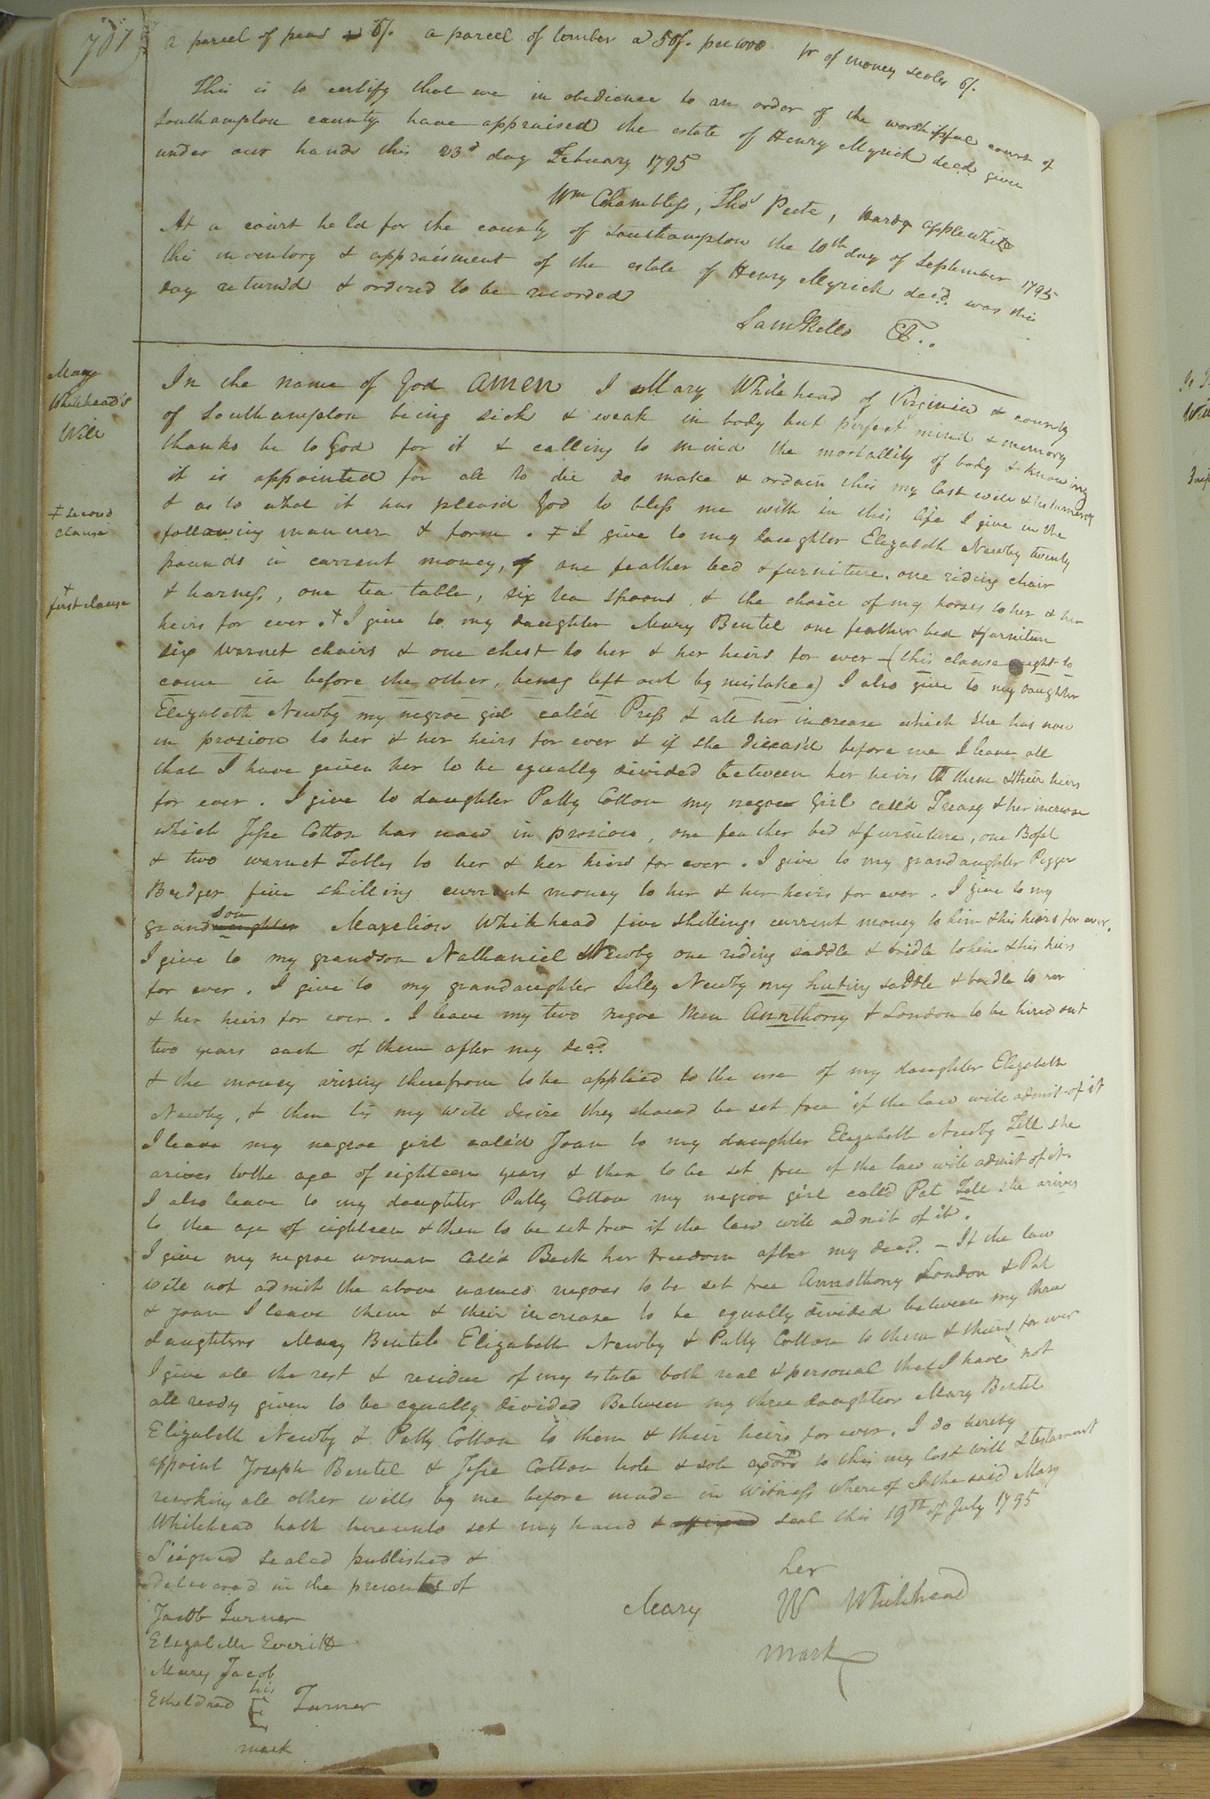 701
a parcel of peas a 6/. a parcel of lomber a 50/. per 1000 pr of money scales 6/.
This is to certify that we in obedience to an order of the worshipful court of
Southampton county have appraised the estate of Henry Myrick decd. given
under our hands this 23d day February 1795
Wm Chambless, Thos Peete, Hardy Applewhite
At a court held for the county of Southampton the 10th day of September 1795
this inventory & appraisment of the estate of Henry Myrick decd. was this
day return'd & ordered to be recorded
Saml Kello
Mary
Whitehead's
Will
In the name of God Amen I Mary Whitehead of Virginia & county
of Southampton being sick & weak in body but perfect mind & memory
thanks be to God for it & calling to mind the mortallity of body & knowing
it is appointed for all to die do make & ordain this my last will & testament
& as to what it has pleas'd God to bless me with in this life I give in the
‡ second
clause
following manner & form. ‡ I give to my daughter Elizabeth Newby twenty
pounds in current money, one feather bed & furniture, one riding chair
& harness, one tea table, six tea spoons & the choice of my horses to her & her
†
first clause
heirs for ever. † I give to my daughter Mary Bentel one feather bed & furniture
six warnet chairs & one chest to her & her heirs for ever — (this clause ought to
come in before the other, being left out by mistake) I also give to my daughter
Elizabeth Newby my negroe girl call'd Priss & all her increase which she has now
in prosion to her & her heirs for ever & if she diceas'd before me I leave all
that I have given her to be equally divided between her heirs to them & their heirs
for ever. I give to daughter Patty Cotton my negroe Girl call'd Treasy & her increase
which Jesse Cotton has now in prosion, one feather bed & furniture, one
& two warnet Tables to her & her heirs for ever. I give to my grandaughter Peggy
Bridger five shilling current money to her & her heirs for ever. I give to my
grandson Whitehead five shillings current money to him & his heirs for ever.
I give to my grandson Nathaniel Newby one riding saddle & bridle to him & his heirs
for ever. I give to my grandaughter Silly Newby my hunting saddle & bridle to her
& her heirs for ever. I leave my two negroe Men Annthony & London to be hired out
two years each of them after my decd.
& the money arising therefrom to be applied to the use of my daughter Elizabeth
Newby, & then by my will desire they should be set free if the law will admit of it
I leave my negroe girl call'd Joan to my daughter Elizabeth Newby Till she
arives to the age of eighteen years & then to be set free if the law will admit of it.
I also leave to my daughter Patty Cotton my negroe girl call'd Pat Till she arives
to the age of eighteen & then to be set free if the law will admit of it.
I give my negroe woman Call'd Beck her freedom after my decd. — If the law
will not admit the above named negroes to be set free Annthony London & Pat
& Joan I leave them & their increase to be equally divided between my three
daughters Mary Bentel Elizabeth Newby & Patty Cotton to them & theirs for ever
I give all the rest & residue of my estate both real & personal that I have not
all ready given to be equally divided Between my three daughters Mary Bentel
Elizabeth Newby & Patty Cotton to them & their heirs for ever. I do hereby
appoint Joseph Bentel & Jesse Cotton hole & sole to this my last will & testament
revoking all other wills by me before made in witness where of I the said Mary
Whitehead hath hereunto set my hand & affixed seal this 19th of July 1795
Seigned sealed published &
delivered in the presents of
Jacob Turner
Elizabeth Everitt
Mary Jacob
Etheldred his E mark Turner
Mary her W mark Whitehead